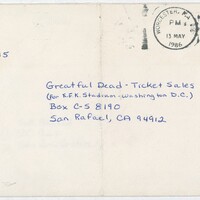 WORCESTER, MA
PM
13 MAY
1986
5
Greatful Dead - Ticket Sales
(for R.F.K. Stadium - Washington D.C.)
Box C-S 8190
San Rafael, CA 94912